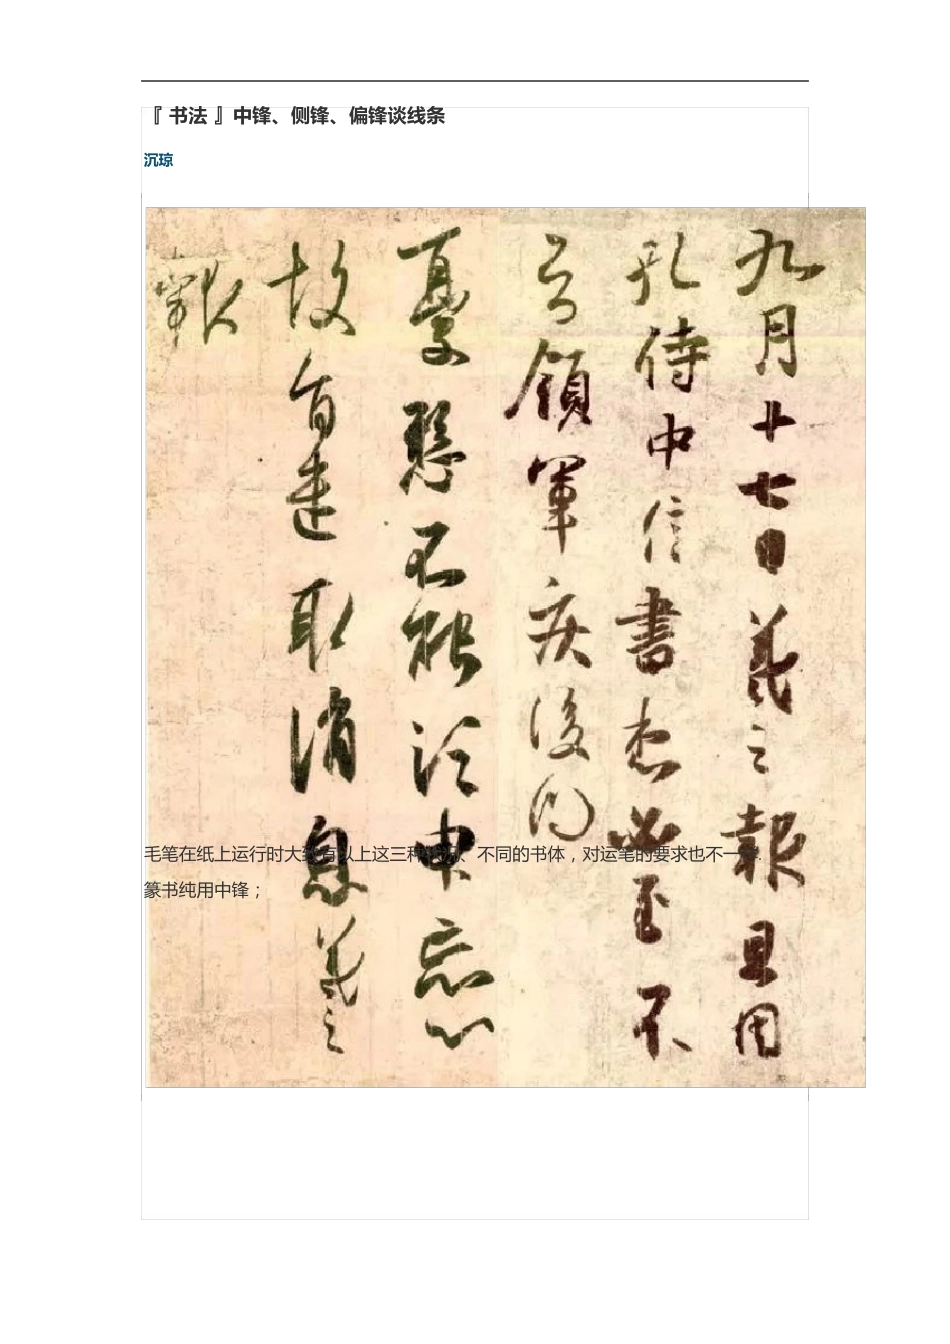 『 书法 』中锋、侧锋、偏锋谈线条
沉琼
九月十七日羲之報且因
孔侍中信書想必至不
知領軍疾後問
憂懸不能須臾忘心
故旨遣取消息羲之
報
毛笔在纸上运行时大致有以上这三种状况、不同的书体，对运笔的要求也不一样.
篆书纯用中锋；